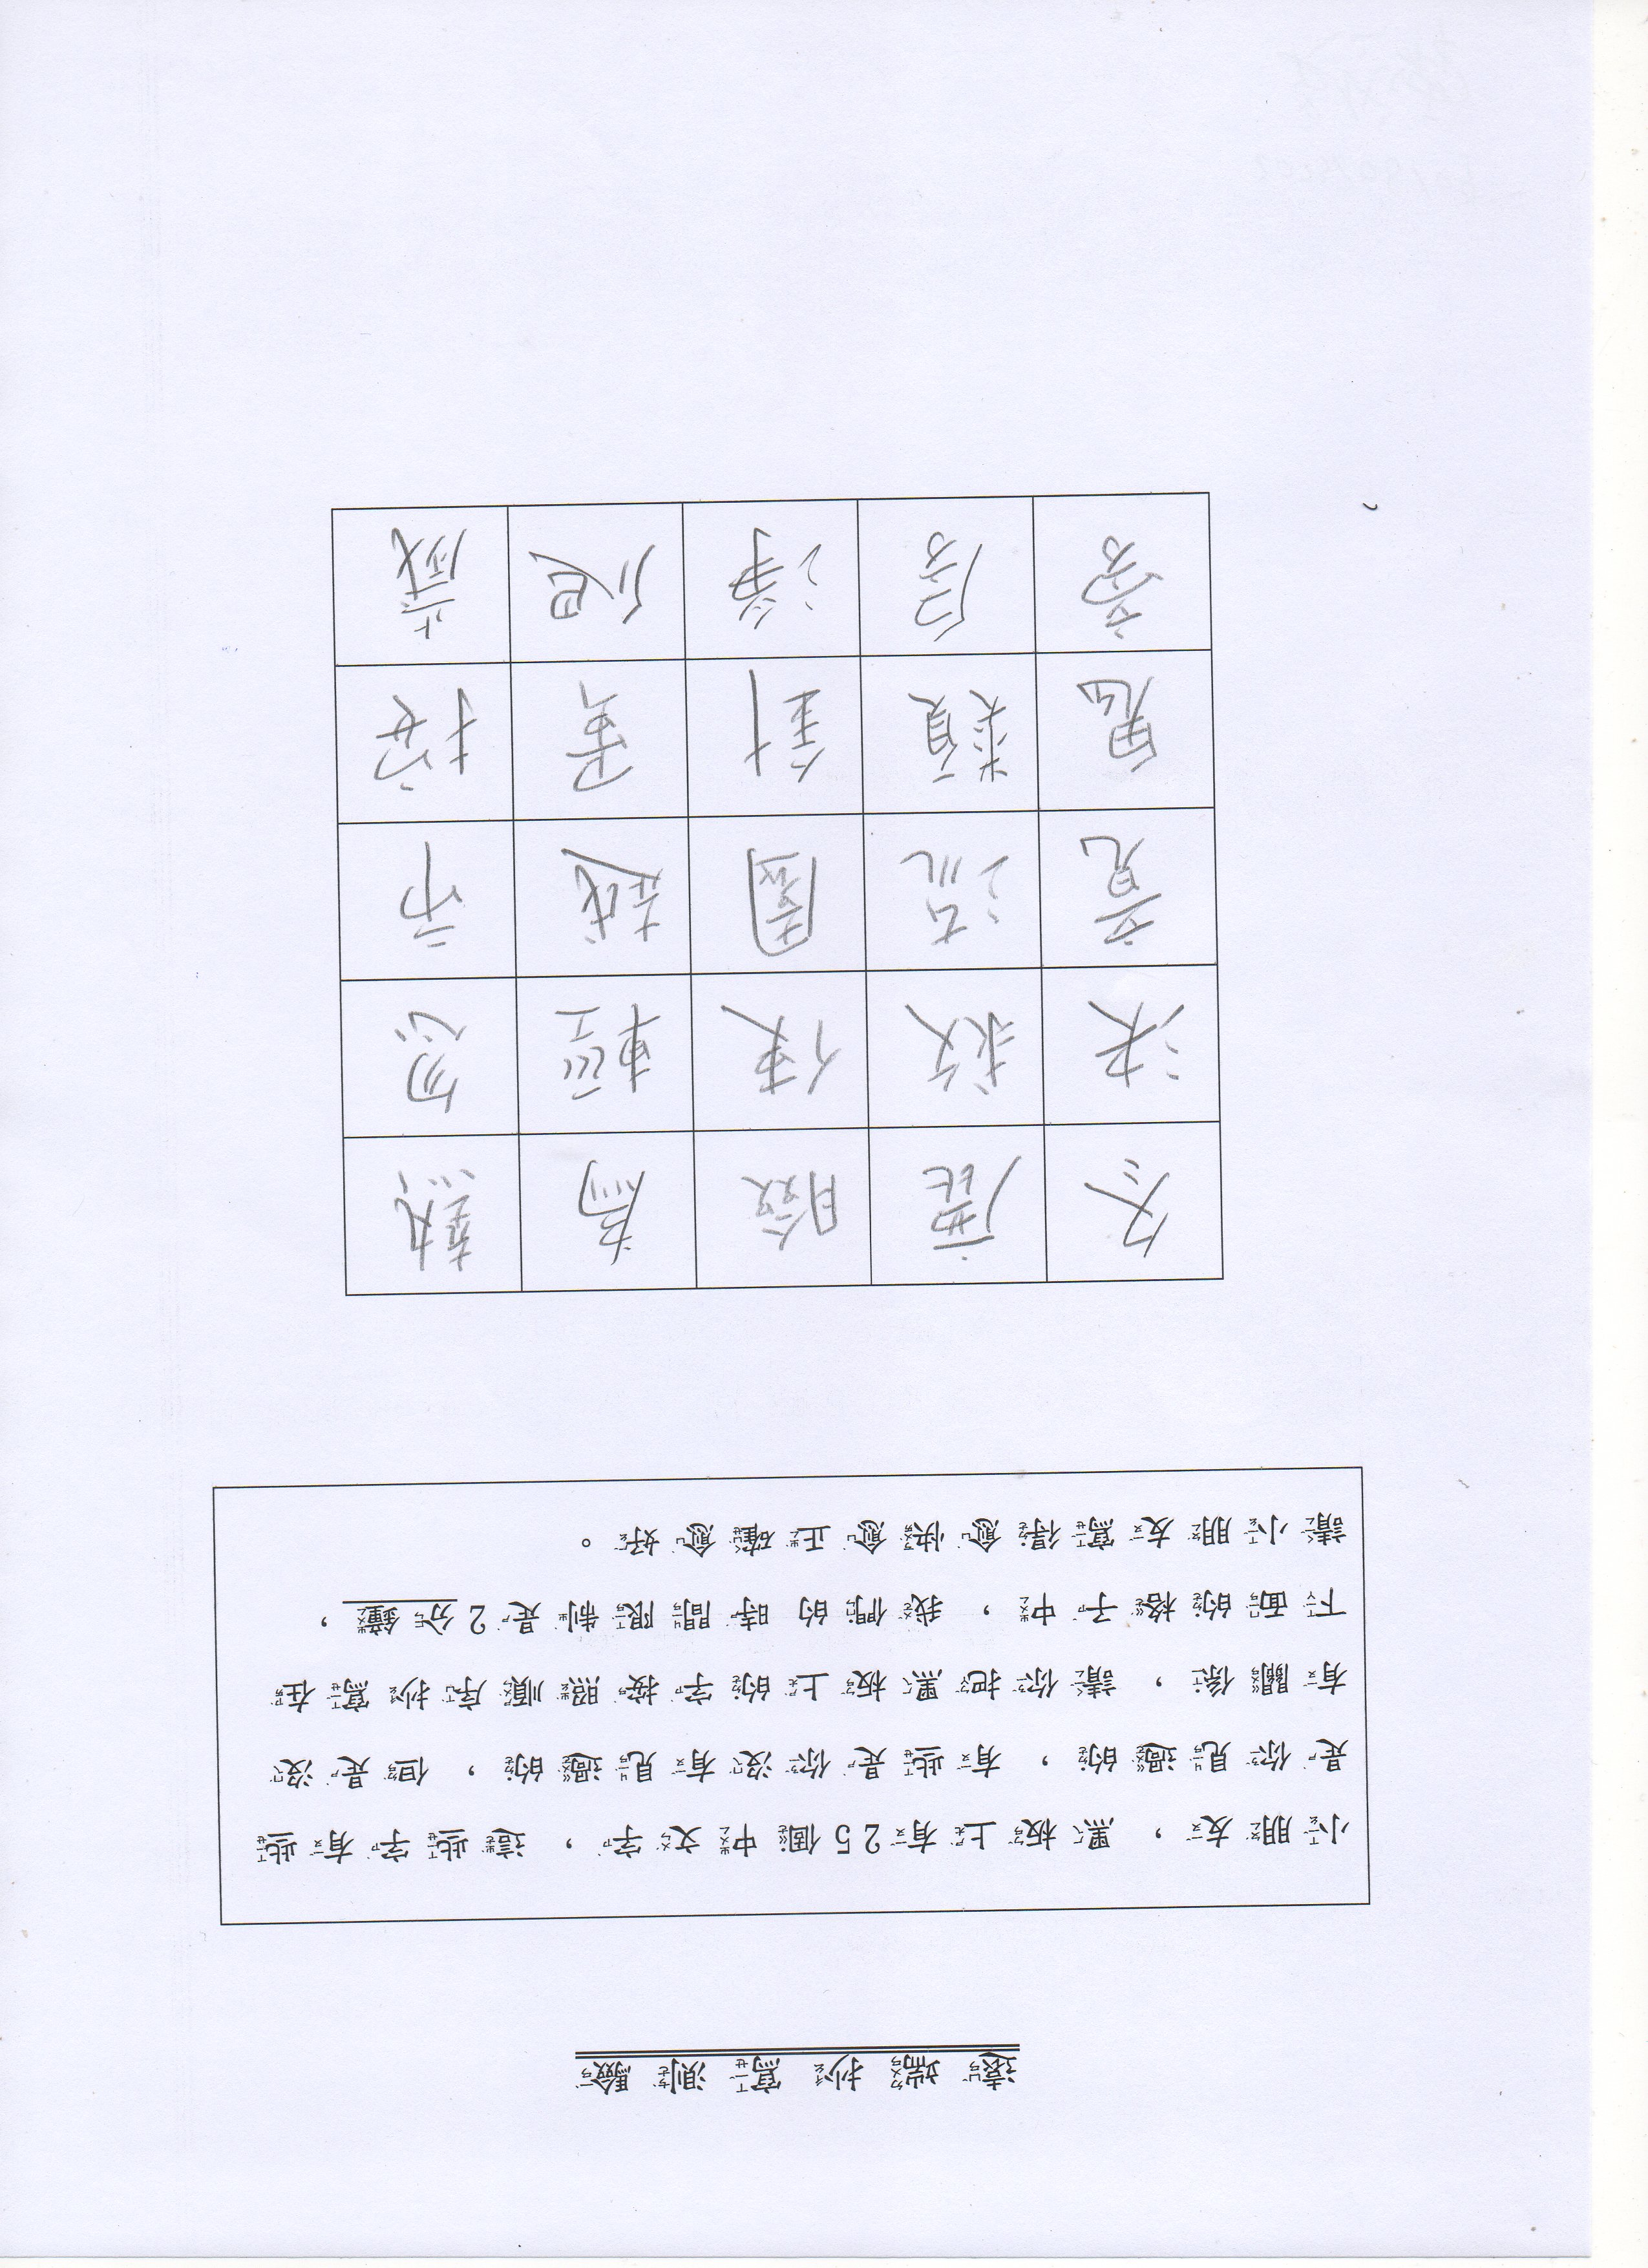 遠端抄寫測驗
小朋友，黑板上有25個中文字，這些字有些
是你見過的，有些是你沒有見過的，但是沒
有關係，請你把黑板上的字按照順序抄寫在
下面的格子中，我們的時間限制是2分鐘，
請小朋友寫得愈快愈正確愈好。
冬 鹿 臉 為 熱
決 救 使 輕 忽
竟 流 園 越 市
鬼 類 針 蛋 按
旁 房 淨 爬 歲